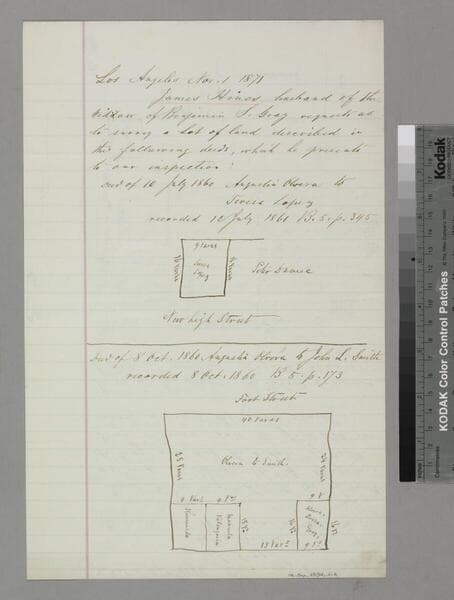 Los Angeles Nov. 1 1871
James Hines, husband of the
widow of Benjamin S. Gray requests us
to survey a Lot of land described in
the following deeds, which he presents
to our inspection:
Deed of 12 July 1860 Augustin Olvera to
Teresa Lopez
recorded 12 July 1861 B. 5. p. 345
9 varas
16 varas
Teresa
Lopez
16 varas
New High Street
Deed of 8 Oct. 1860 Augustin Olvera to John L. Smith
recorded 8 Oct. 1860 B 5. p. 173
Fort Street
40 varas
35 varas
Olvera to Smith.
9 Vars
9 Vrs
9 V
Manuela
Valenzuela
13 Varas
9 Vrs
Kodak
KODAK Color Control Patches